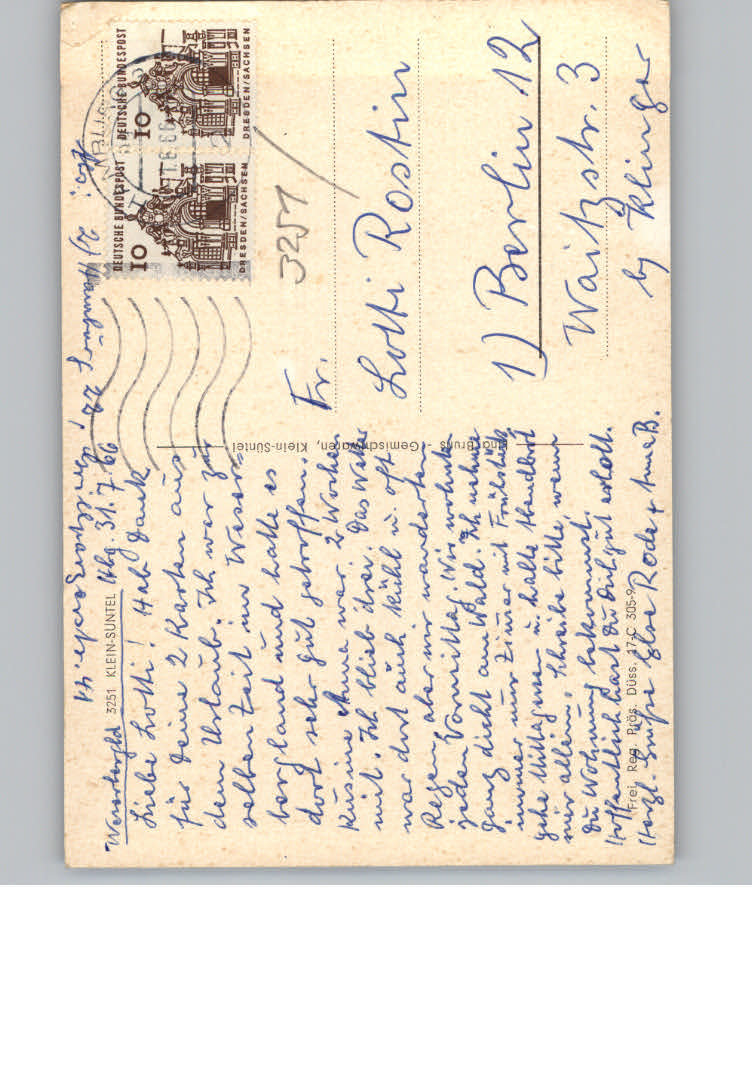 Weserbergld 3251 KLEIN-SÜNTEL Hbg. 31.7.66
Liebe Lotti! Hab Dank
für Deine 2 Karten aus
dem Urlaub. Ich war zur
selben Zeit im Weser-
bergland und hatte es
dort sehr gut getroffen.
Kusine Anna war 2 Wochen
mit. Ich blieb drei. Das Wetter
war dort auch kühl u. oft
Regen, aber wir wanderten
jeden Vormittag. Wir wohnten
ganz dicht am Wald. Ich nehme
immer nur Zimmer mit Frühstück
gehe Mittagessen u. halte Abendbrot
mir allein. Schreibe bitte, wenn
Du Wohnung bekommst.
Hoffentlich hast Du Dich gut erholt.
Herzl. Grüße Else Rode + Anna B.
Abs.: 2) Hamburg 22,
Edna Bruns - Gemischtwaren, Klein-Süntel
Frei. Reg. Präs. Düss. 17-C 305-9
DEUTSCHE BUNDESPOST
10
DRESDEN/SACHSEN
DEUTSCHE BUNDESPOST
10
DRESDEN/SACHSEN
3251
Fr.
Lotti Rostin
1) Berlin 12
Waitzstr. 3
by Klinger